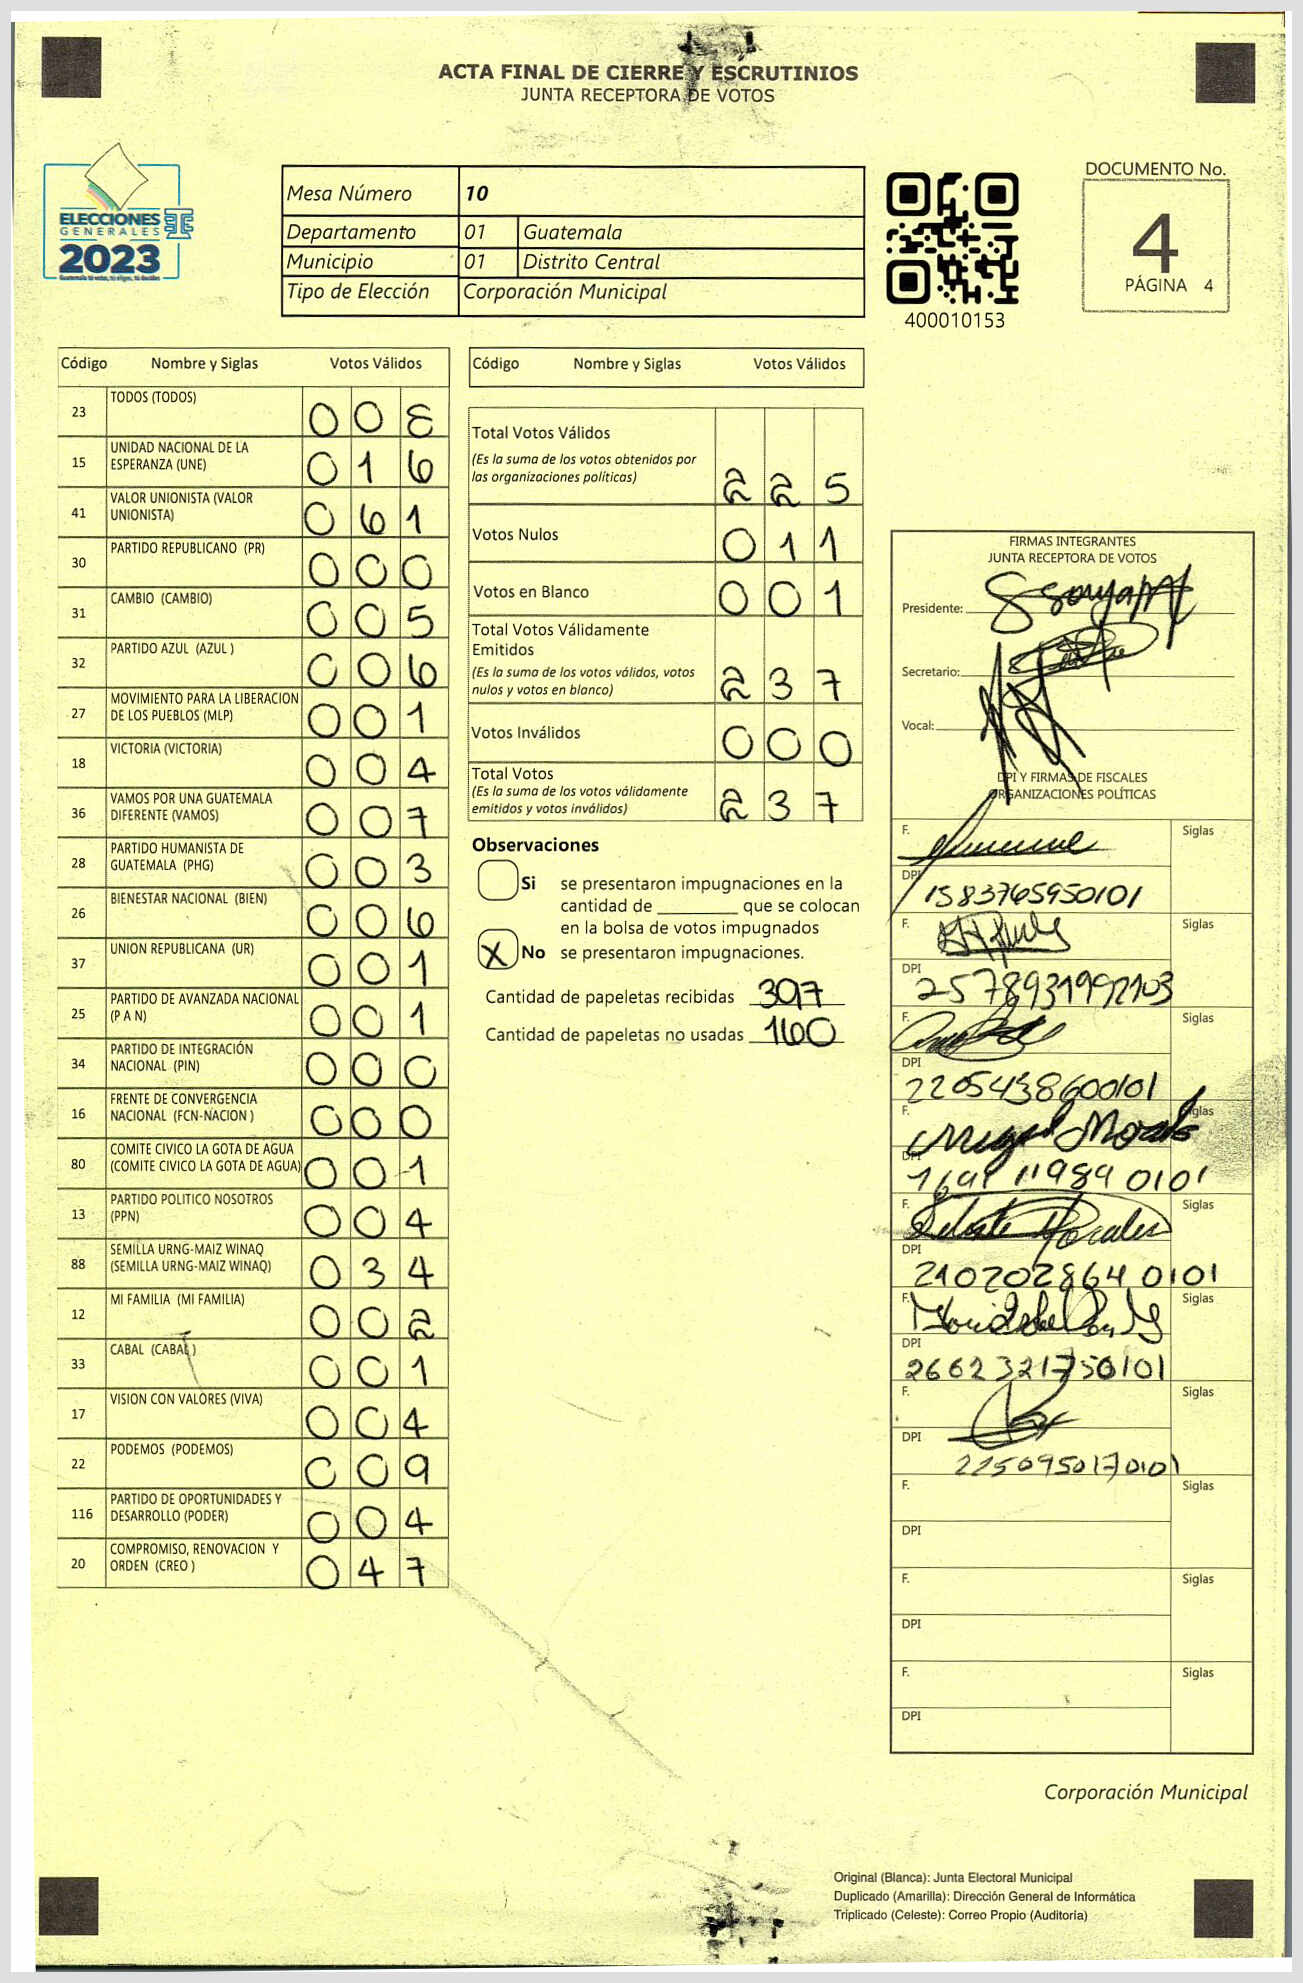 ACTA FINAL DE CIERRE Y ESCRUTINIOS
JUNTA RECEPTORA DE VOTOS
ELECCIONES
GENERALES
2023
Mesa Número 10
Departamento 01 Guatemala
Municipio 01 Distrito Central
Tipo de Elección Corporación Municipal
400010153
DOCUMENTO No.
4
PÁGINA 4
Código Nombre y Siglas Votos Válidos
23 TODOS (TODOS) 008
15 UNIDAD NACIONAL DE LA
ESPERANZA (UNE) 016
41 VALOR UNIONISTA (VALOR
UNIONISTA) 061
30 PARTIDO REPUBLICANO (PR) 000
31 CAMBIO (CAMBIO) 005
32 PARTIDO AZUL (AZUL ) 006
27 MOVIMIENTO PARA LA LIBERACION
DE LOS PUEBLOS (MLP) 001
18 VICTORIA (VICTORIA) 004
36 VAMOS POR UNA GUATEMALA
DIFERENTE (VAMOS) 007
28 PARTIDO HUMANISTA DE
GUATEMALA (PHG) 003
26 BIENESTAR NACIONAL (BIEN) 006
37 UNION REPUBLICANA (UR) 001
25 PARTIDO DE AVANZADA NACIONAL
(P A N) 001
34 PARTIDO DE INTEGRACIÓN
NACIONAL (PIN) 000
16 FRENTE DE CONVERGENCIA
NACIONAL (FCN-NACION ) 000
80 COMITE CIVICO LA GOTA DE AGUA
(COMITE CIVICO LA GOTA DE AGUA) 001
13 PARTIDO POLITICO NOSOTROS
(PPN) 004
88 SEMILLA URNG-MAIZ WINAQ
(SEMILLA URNG-MAIZ WINAQ) 034
12 MI FAMILIA (MI FAMILIA) 002
33 CABAL (CABAL) 001
17 VISION CON VALORES (VIVA) 004
22 PODEMOS (PODEMOS) 009
116 PARTIDO DE OPORTUNIDADES Y
DESARROLLO (PODER) 004
20 COMPROMISO, RENOVACION Y
ORDEN (CREO ) 047
Código Nombre y Siglas Votos Válidos
Total Votos Válidos
(Es la suma de los votos obtenidos por
las organizaciones políticas) 225
Votos Nulos 011
Votos en Blanco 001
Total Votos Válidamente
Emitidos
(Es la suma de los votos válidos, votos
nulos y votos en blanco) 237
Votos Inválidos 000
Total Votos
(Es la suma de los votos válidamente
emitidos y votos inválidos) 237
Observaciones
Si se presentaron impugnaciones en la
cantidad de ________ que se colocan
en la bolsa de votos impugnados
X No se presentaron impugnaciones.
Cantidad de papeletas recibidas 397
Cantidad de papeletas no usadas 160
FIRMAS INTEGRANTES
JUNTA RECEPTORA DE VOTOS
Presidente:
Secretario:
Vocal:
DPI Y FIRMAS DE FISCALES
ORGANIZACIONES POLÍTICAS
F. Siglas
DPI 1583765950101
F. Siglas
DPI
F. Siglas
DPI 2205438600101
F. Miguel Morales Siglas
DPI
F. Celeste Morales Siglas
DPI 2102028640101
F. Siglas
DPI 2662321750101
F. Siglas
DPI 2250950170101
F. Siglas
DPI
F. Siglas
DPI
F. Siglas
DPI
Corporación Municipal
Original (Blanca): Junta Electoral Municipal
Duplicado (Amarilla): Dirección General de Informática
Triplicado (Celeste): Correo Propio (Auditoría)